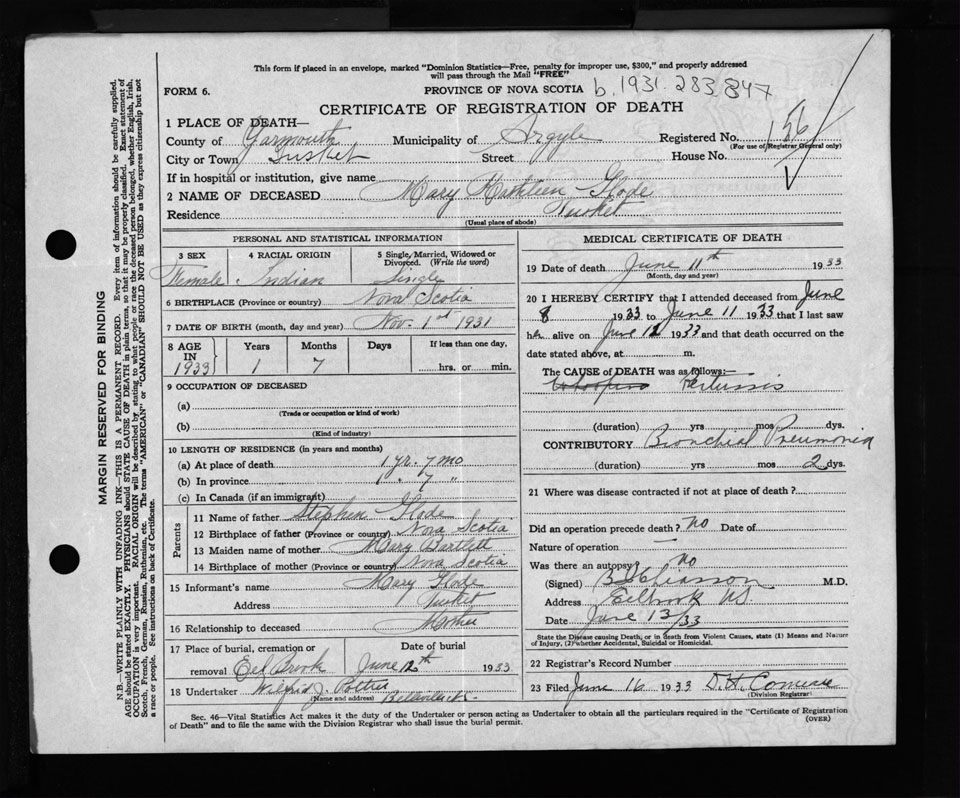 This form if placed in an envelope, marked "Dominion Statistics—Free, penalty for improper use, $300," and properly addressed
will pass through the Mail "FREE"
FORM 6.
PROVINCE OF NOVA SCOTIA
b. 1931. 283 847
CERTIFICATE OF REGISTRATION OF DEATH
1 PLACE OF DEATH—
County of Yarmouth Municipality of Argyle Registered No. 156
(For use of Registrar General only)
City or Town Tusket Street House No.
If in hospital or institution, give name
2 NAME OF DECEASED Mary Kathleen Glode
Residence Tusket
(Usual place of abode)
PERSONAL AND STATISTICAL INFORMATION
3 SEX 4 RACIAL ORIGIN 5 Single, Married, Widowed or
Divorced. (Write the word)
Female Indian Single
6 BIRTHPLACE (Province or country) Nova Scotia
7 DATE OF BIRTH (month, day and year) Nov. 1st 1931
8 AGE IN 1933 Years Months Days If less than one day,
1 7 hrs. or min.
9 OCCUPATION OF DECEASED
(a)
(Trade or occupation or kind of work)
(b)
(Kind of industry)
10 LENGTH OF RESIDENCE (in years and months)
(a) At place of death 1 yr. 7 mo
(b) In province 1 " 7 "
(c) In Canada (if an immigrant)
Parents
11 Name of father Stephen Glode
12 Birthplace of father (Province or country) Nova Scotia
13 Maiden name of mother Mary Bartlett
14 Birthplace of mother (Province or country) Nova Scotia
15 Informant's name Mary Glode
Address Tusket
16 Relationship to deceased Mother
17 Place of burial, cremation or Date of burial
removal Eel Brook June 12th 1933
18 Undertaker Wilfrid J. Pottier
(Name and address)
MEDICAL CERTIFICATE OF DEATH
19 Date of death June 11th 1933
(Month, day and year)
20 I HEREBY CERTIFY that I attended deceased from June
8 1933 to June 11 1933 that I last saw
her alive on June 1933 and that death occurred on
date stated above, at m.
The CAUSE of DEATH was as follows:
Whooping Pertussis
(duration) yrs mos dys.
CONTRIBUTORY Bronchial Pneumonia
(duration) yrs mos 2 dys.
21 Where was disease contracted if not at place of death?
Did an operation precede death? no Date of
Nature of operation —
Was there an autopsy? no
(Signed) Chiasson M.D.
Address Eelbrook NS
Date June 13/33
State the Disease causing Death; or in death from Violent Causes, state (1) Means and Nature
of Injury, (2) whether Accidental, Suicidal or Homicidal.
22 Registrar's Record Number
23 Filed June 16 1933 D. H. Comeau
(Division Registrar)
Sec. 46—Vital Statistics Act makes it the duty of the Undertaker or person acting as Undertaker to obtain all the particulars required in the "Certificate of Registration
of Death" and to file the same with the Division Registrar who shall issue the burial permit. (OVER)
MARGIN RESERVED FOR BINDING
N.B.—WRITE PLAINLY WITH UNFADING INK—THIS IS A PERMANENT RECORD. Every item of information should be carefully supplied.
AGE should be stated EXACTLY. PHYSICIANS should STATE CAUSE OF DEATH in plain terms, so that it may be properly classified. Exact statement of
OCCUPATION is very important. RACIAL ORIGIN will be described by stating to what people or race the deceased person belonged, whether English, Irish,
Scotch, French, German, Russian, Ruthenian, etc. The terms "AMERICAN" or "CANADIAN" SHOULD NOT BE USED as they express citizenship but not
a race or people. See instructions on back of Certificate.